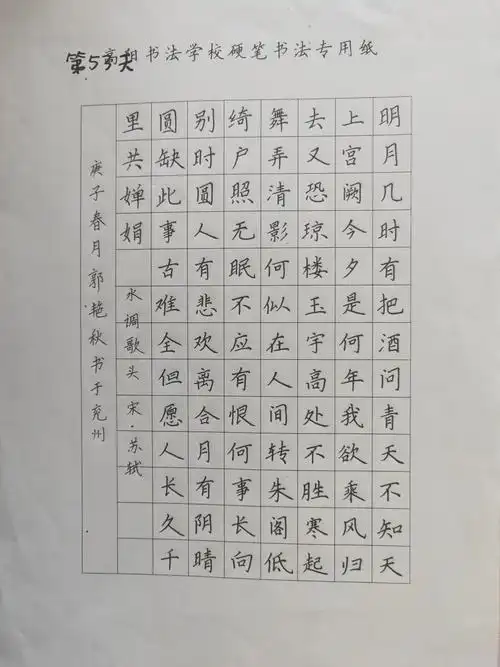 第5天
书法学校硬笔书法专用纸
明月几时有把酒问青天不知天
上宫阙今夕是何年我欲乘风归
去又恐琼楼玉宇高处不胜寒起
舞弄清影何似在人间转朱阁低
绮户照无眠不应有恨何事长向
别时圆人有悲欢离合月有阴晴
圆缺此事古难全但愿人长久千
里共婵娟 水调歌头 宋·苏轼
庚子春月郭艳秋书于兖州